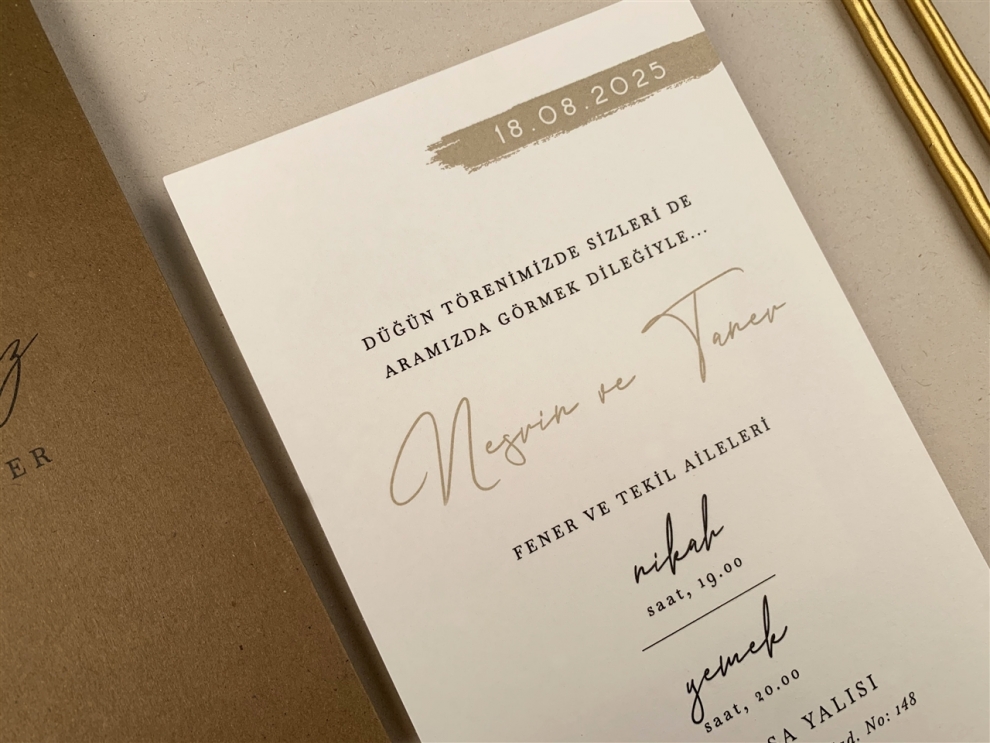 18.08.2025
DÜĞÜN TÖRENİMİZDE SİZLERİ DE
ARAMIZDA GÖRMEK DİLEĞİYLE...
Nesrin ve Taner
FENER VE TEKİL AİLELERİ
nikah
saat, 19.00
yemek
saat, 20.00
YALISI
No: 148